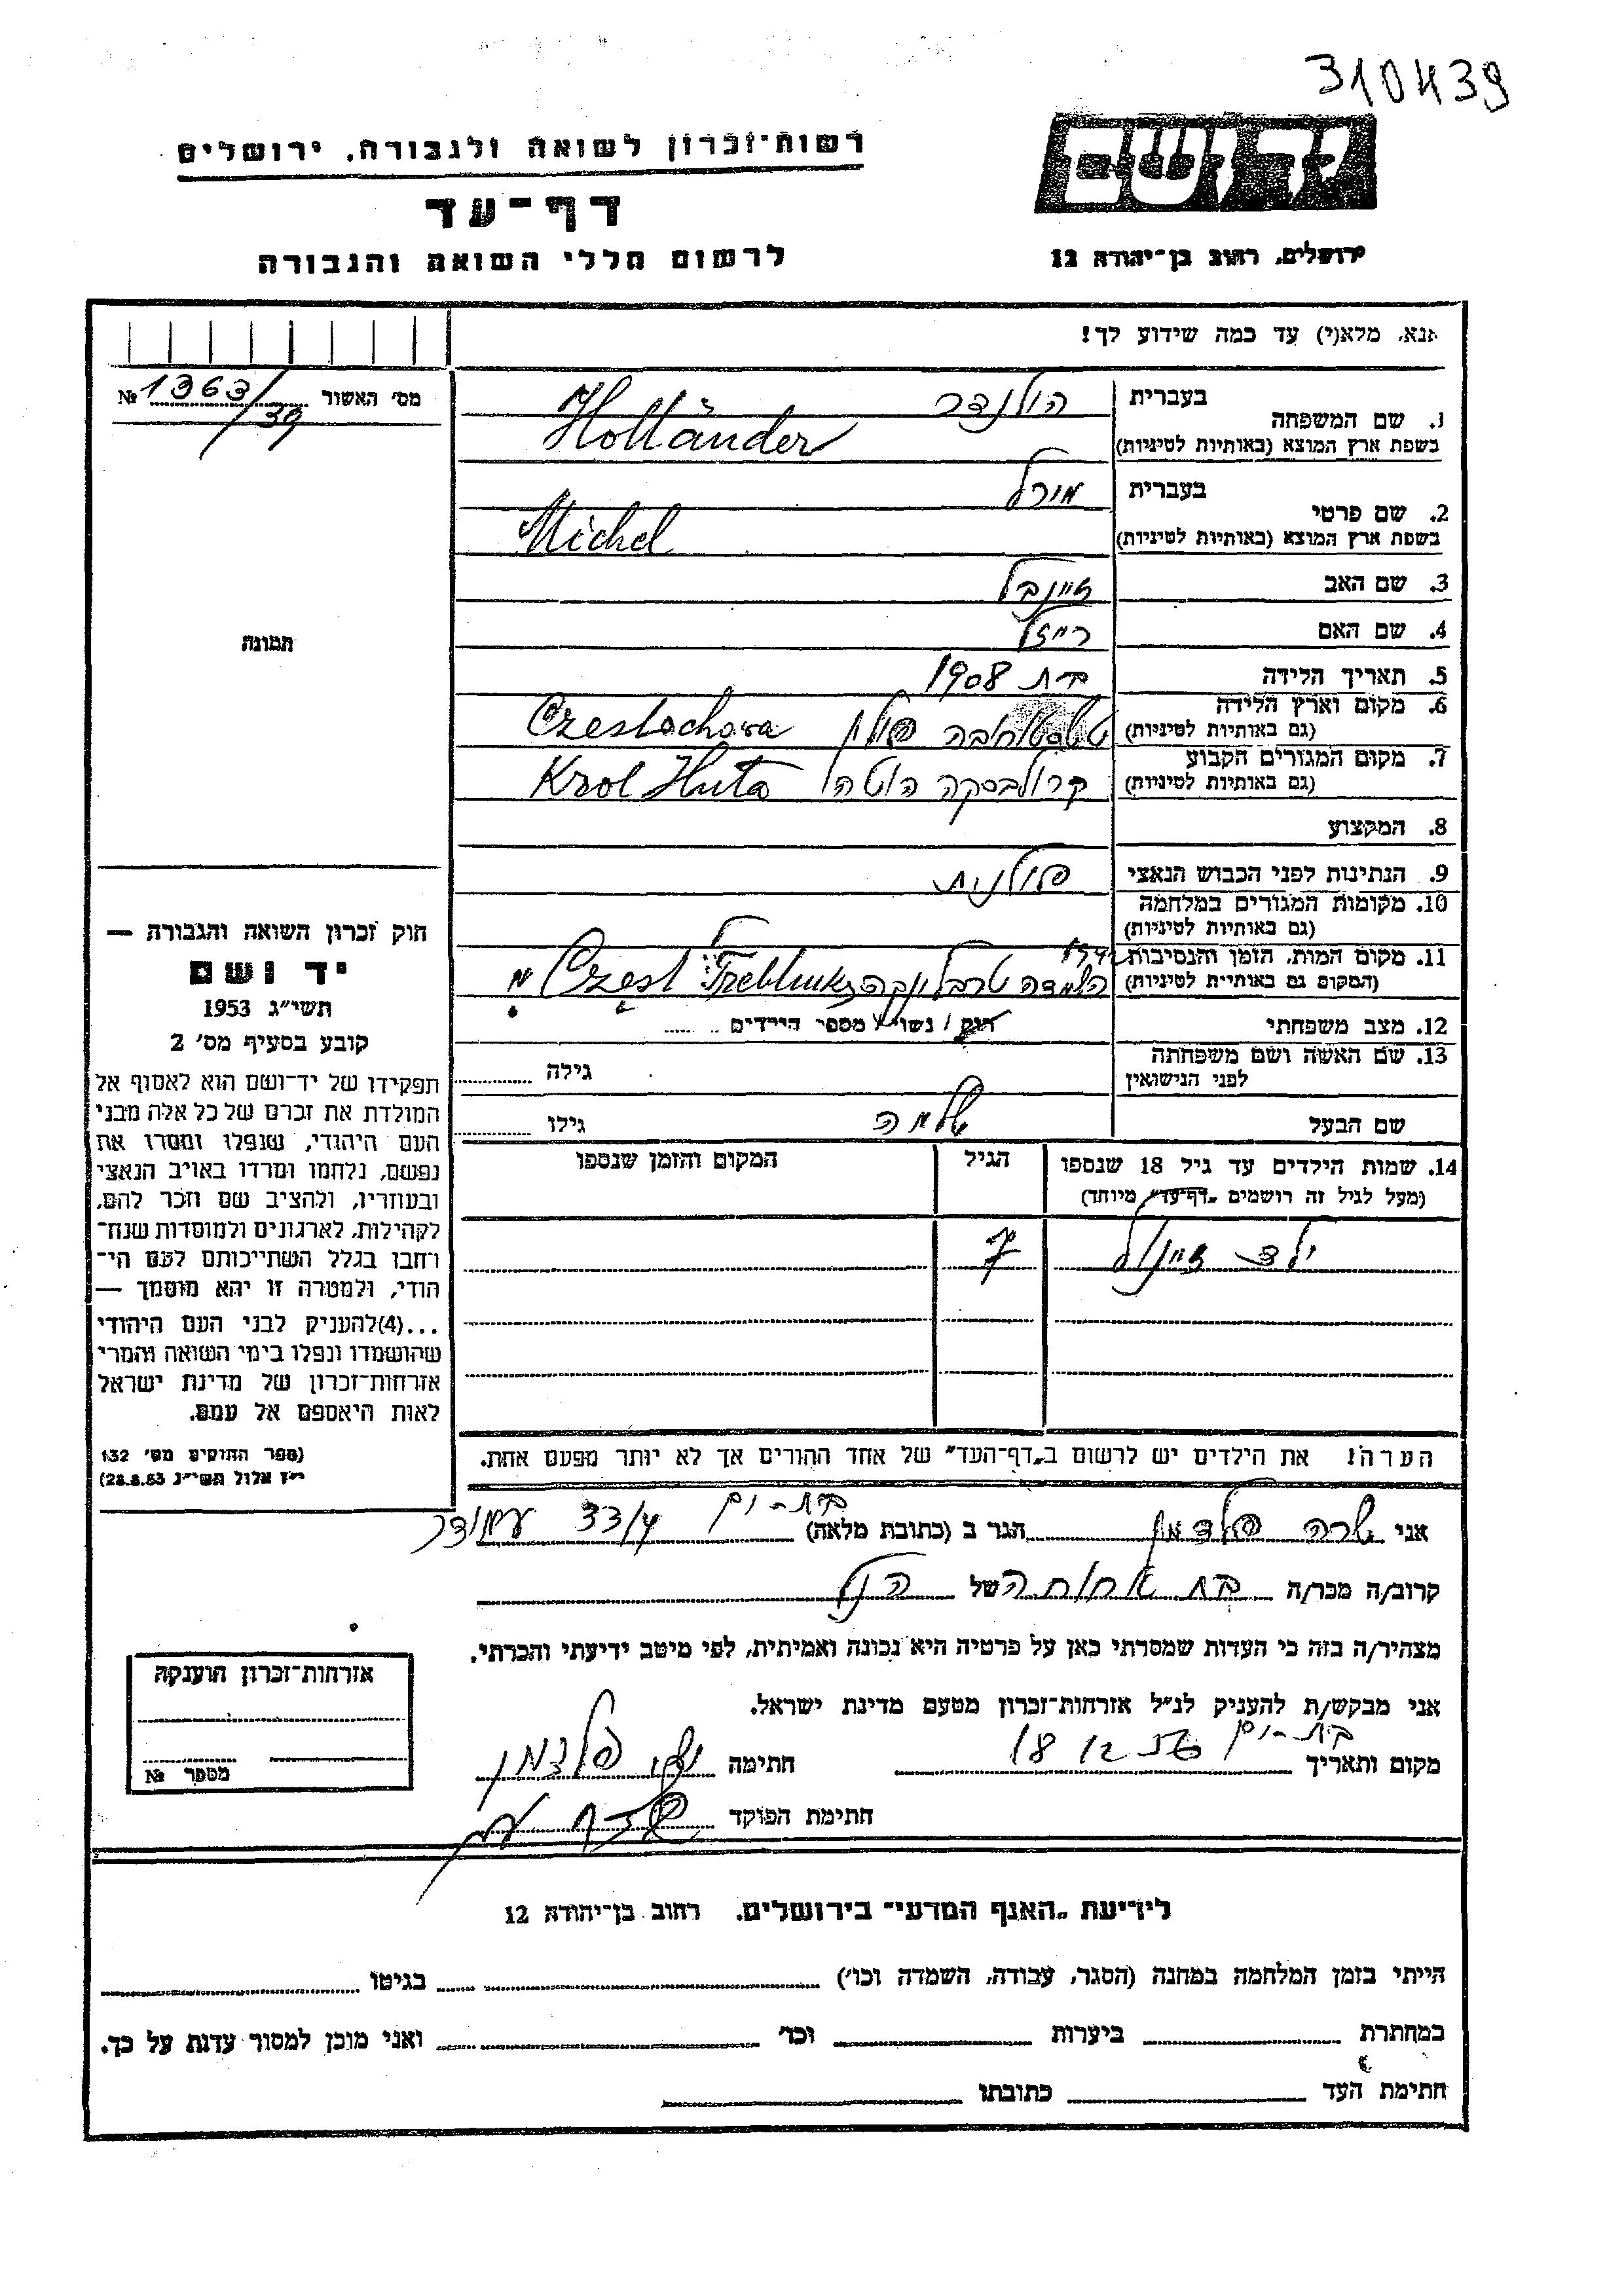 310439
רשות־זכרון לשואה ולגבורה, ירושלים
דף־עד
לרשום חללי השואה והגבורה
יד ושם
ירושלים, רחוב בן־יהודה 12
אנא, מלא(י) עד כמה שידוע לך!
מס׳ האשור № 1363/39
תמונה
1. שם המשפחה בעברית הולנדר
בשפת ארץ המוצא (באותיות לטיניות) Holländer
2. שם פרטי בעברית
בשפת ארץ המוצא (באותיות לטיניות) Michel
3. שם האב
4. שם האם
5. תאריך הלידה 1908
6. מקום וארץ הלידה
(גם באותיות לטיניות) פולין Czestochowa
7. מקום המגורים הקבוע
(גם באותיות לטיניות) קרולבסקה הוטה Krol Huta
8. המקצוע
9. הנתינות לפני הכבוש הנאצי פולנית
10. מקומות המגורים במלחמה
(גם באותיות לטיניות)
11. מקום המות, הזמן והנסיבות
(המקום גם באותיות לטיניות) טרבלינקה Treblinka Czest
12. מצב משפחתי רוק / נשוי / מספר הילדים
13. שם האשה ושם משפחתה
לפני הנישואין גילה
שם הבעל שלמה גילו
14. שמות הילדים עד גיל 18 שנספו הגיל המקום והזמן שנספו
(מעל לגיל זה רושמים „דף־עד״ מיוחד)
ילד 7
הערה! את הילדים יש לרשום ב„דף־העד״ של אחד ההורים אך לא יותר מפעם אחת.
חוק זכרון השואה והגבורה —
יד ושם
תשי״ג 1953
קובע בסעיף מס׳ 2
תפקידו של יד־ושם הוא לאסוף אל
המולדת את זכרם של כל אלה מבני
העם היהודי, שנפלו ומסרו את
נפשם, נלחמו ומרדו באויב הנאצי
ובעוזריו, ולהציב שם וזכר להם,
לקהילות, לארגונים ולמוסדות שנח־
רבו בגלל השתייכותם לעם הי־
הודי, ולמטרה זו יהא מוסמך —
...(4)להעניק לבני העם היהודי
שהושמדו ונפלו בימי השואה והמרי
אזרחות־זכרון של מדינת ישראל
לאות היאספם אל עמם.
(ספר החוקים מס׳ 132
י״ז אלול תשי״ג 28.8.53)
אני שרה פלדמן הגר ב (כתובת מלאה) בת-ים 33/4
קרוב/ה מכר/ה בת אחותה של הנ״ל
מצהיר/ה בזה כי העדות שמסרתי כאן על פרטיה היא נכונה ואמיתית, לפי מיטב ידיעתי והכרתי.
אני מבקש/ת להעניק לנ״ל אזרחות־זכרון מטעם מדינת ישראל.
מקום ותאריך בת-ים 18 12 חתימה פלדמן
חתימת הפוקד
אזרחות־זכרון הוענקה
מספר №
לידיעת „האגף המדעי״ בירושלים. רחוב בן־יהודה 12
הייתי בזמן המלחמה במחנה (הסגר, עבודה, השמדה וכו׳) בגיטו
במחתרת ביערות וכו׳ ואני מוכן למסור עדות על כך.
חתימת העד כתובתו